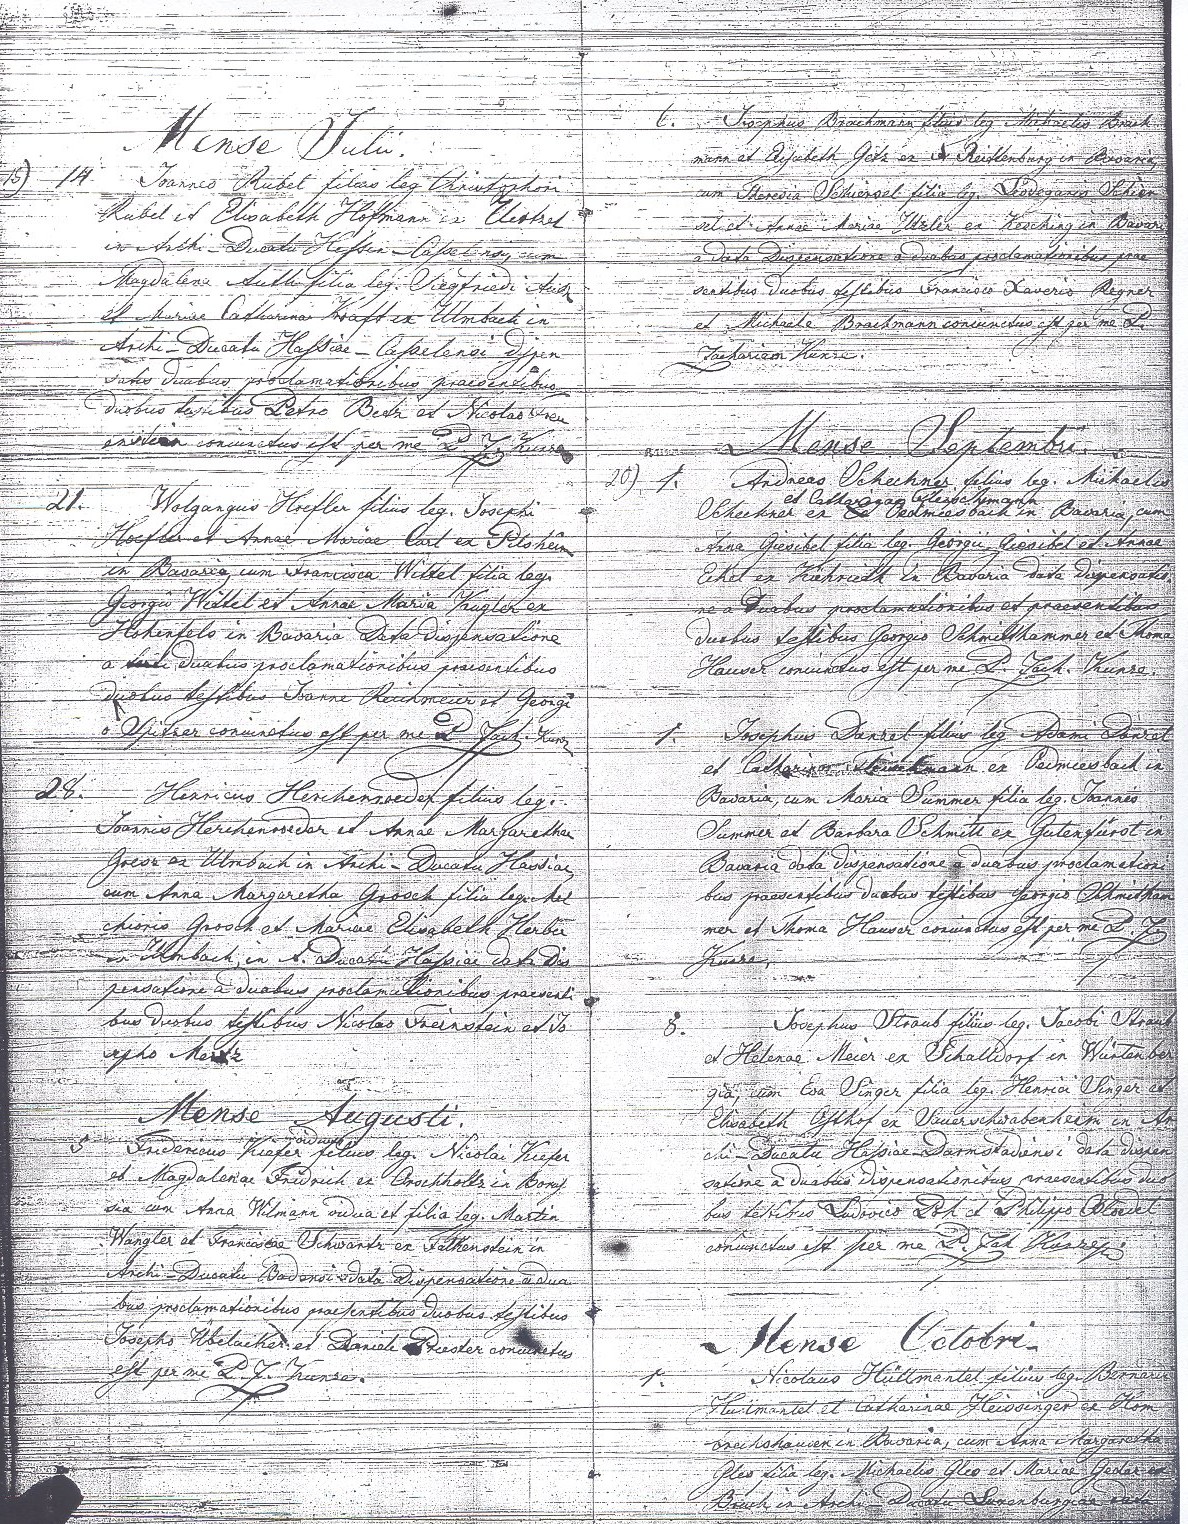 Mense Julii.
15) 14 Joannes Rubel filius leg. Christophori
Rubel et Elisabeth Hofmann ex
in Archi-Ducatu Casselensi, cum
Magdalena Auth filia leg. Siegfriedi Auth
et Mariae Catharinae Kraft ex Ulmbach in
Archi-Ducatu Hassiae-Casselensi dispen
satis duabus proclamationibus praesentibus
duobus testibus Petro Betz et Nicolao Frei
coniunctus est per me P. Z. Kunze
21. Wolgangus Hoefler filius leg. Josephi
Hoefler et Annae Mariae Carl ex Pilsheim
in Bavaria, cum Francisca Wittel filia leg.
Georgii Wittel et Annae Maria Kugler ex
Hohenfels in Bavaria data dispensatione
a duabus proclamationibus praesentibus
duobus testibus Joanne et Georgi
o Spitzer coniunctus est per me P. Zach. Kunz
28. Henricus Herchenroeder filius leg.
Joannis Herchenroeder et Annae Margarethae
ex Ulmbach in Archi-Ducatu Hassiae
cum Anna Margaretha Grosch filia leg. Mel
chioris Grosch et Mariae Elisabeth Herbe
in Ulmbach in A. Ducatu Hassiae data dis
pensatione a duabus proclamationibus praesenti
bus duobus testibus Nicolao Freinstein et Jo
sepho
Mense Augusti.
5 viduus
Fridericus Kiefer filius leg. Nicolai Kiefer
et Magdalenae Fridrich ex Orschholtz in Borus
sia cum Anna Wilmann vidua et filia leg. Martin
Wangler et Franciscae Schwartz ex Falkenstein in
Archi-Ducatu Badensi data dispensatione a dua
bus proclamationibus praesentibus duobus testibus
Josepho et Daniele Priester coniunctus
est per me P. Z. Kunze.
6. Josephus Brachmann filius leg. Michaelis Brach
mann et Elisabeth Götz ex Reittenburg in Bavaria,
cum Theresia Schiensel filia leg. Leodegarii Schien
sel et Annae Mariae ex Kesching in Bavari
a data Dispensatione a duabus proclamationibus prae
sentibus duobus testibus Francisco Xaverio Regner
et Michaele Brachmann coniunctus est per me P.
Zachariam Kunze.
Mense Septembri.
20) 1. Andreas Schechner filius leg. Michaelis
et Catharinae
Schechner ex Oedmiesbach in Bavaria, cum
Anna Giesibel filia leg. Georgii Giesibel et Annae
Eckel ex in Bavaria data dispensatio
ne a duabus proclamationibus et praesentibus
duobus testibus Georgio Schmitthammer et Thoma
Hauser coniunctus est per me P. Zach. Kunze.
1. Josephus Danzel filius leg. Adami Danzel
et Catharinae ex Oedmiesbach in
Bavaria, cum Maria Summer filia leg. Joannis
Summer et Barbara Schmitt ex Gutenfürst in
Bavaria data dispensatione a duabus proclamationi
bus praesentibus duobus testibus Georgio Schmitham
mer et Thoma Hauser coniunctus est per me P. Z.
Kunze.
8. Josephus Straub filius leg. Jacobi Straub
et Helenae Meier ex Schalldorf in Würtenber
gia, cum Eva Singer filia leg. Henrici Singer et
Elisabeth Osthof ex Sauerschwabenheim in Ar
chi-Ducatu Hassiae-Darmstadiensi data dispen
satione a duabus dispensationibus praesentibus duo
bus testibus Ludovico et Philippo Bloedel
coniunctus est per me P. Zach Kunze
Mense Octobri.
1. Nicolaus Hüllmantel filius leg. Bernardi
Hüllmantel et Catharinae Heissinger ex Hom
in Bavaria, cum Anna Margaretha
Gles filia leg. Michaelis Gles et Mariae Gedar ex
Bruch in Archi-Ducatu Luxenburgiae data